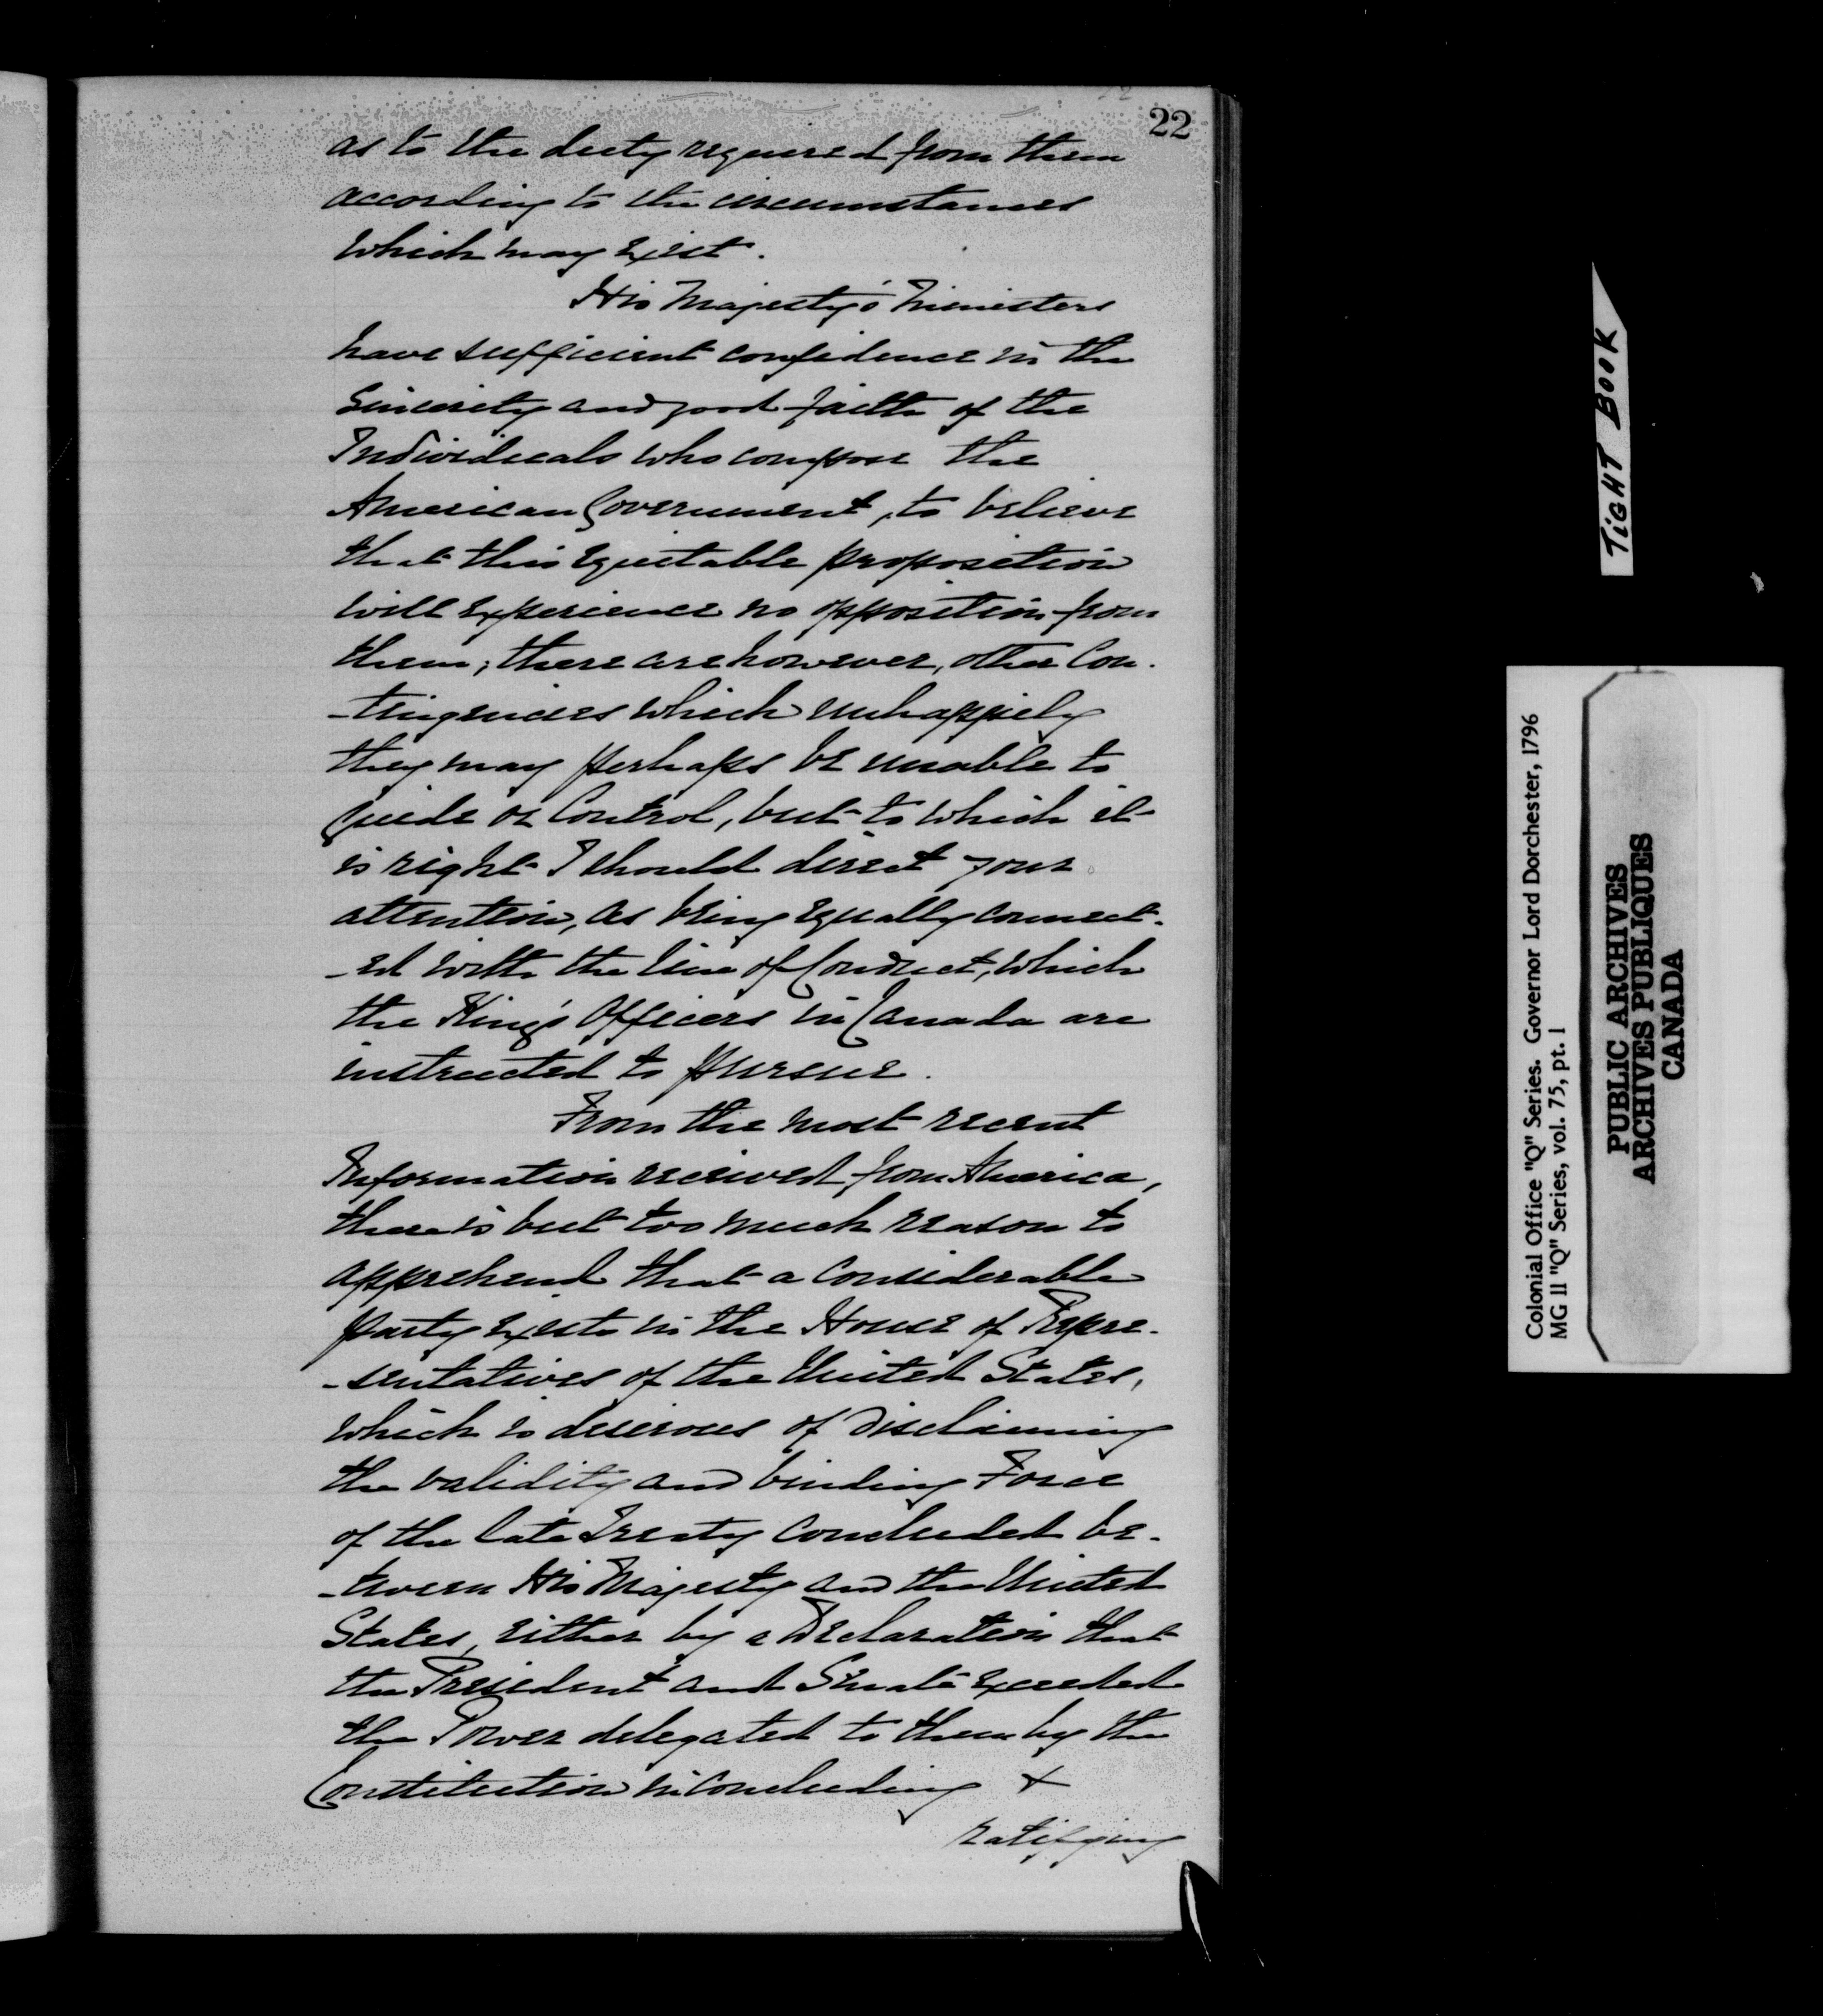 22
as to the duty required from them
according to the circumstances
which may exist.
His Majesty's Ministers
have sufficient confidence in the
Sincerity and good faith of the
Individuals who compose the
American Government, to believe
that this equitable proposition
will experience no opposition from
them; there are however, other Con-
-tingencies which unhappily
they may perhaps be unable to
guide or Control, but to which it
is right I should direct your
attention, as being equally connect-
-ed with the line of Conduct, which
the King's Officers in Canada are
instructed to pursue.
From the most recent
Information received from America,
there is but too much reason to
apprehend that a considerable
party exists in the House of Repre-
-sentatives of the United States,
which is desirous of disclaiming
the validity and binding Force
of the late Treaty concluded be-
-tween His Majesty and the United
States, either by a Declaration that
the President and Senate exceeded
the Power delegated to them by the
Constitution in concluding +
ratifying
TIGHT BOOK
Colonial Office "Q" Series. Governor Lord Dorchester, 1796
MG 11 "Q" Series, vol. 75, pt. 1
PUBLIC ARCHIVES
ARCHIVES PUBLIQUES
CANADA